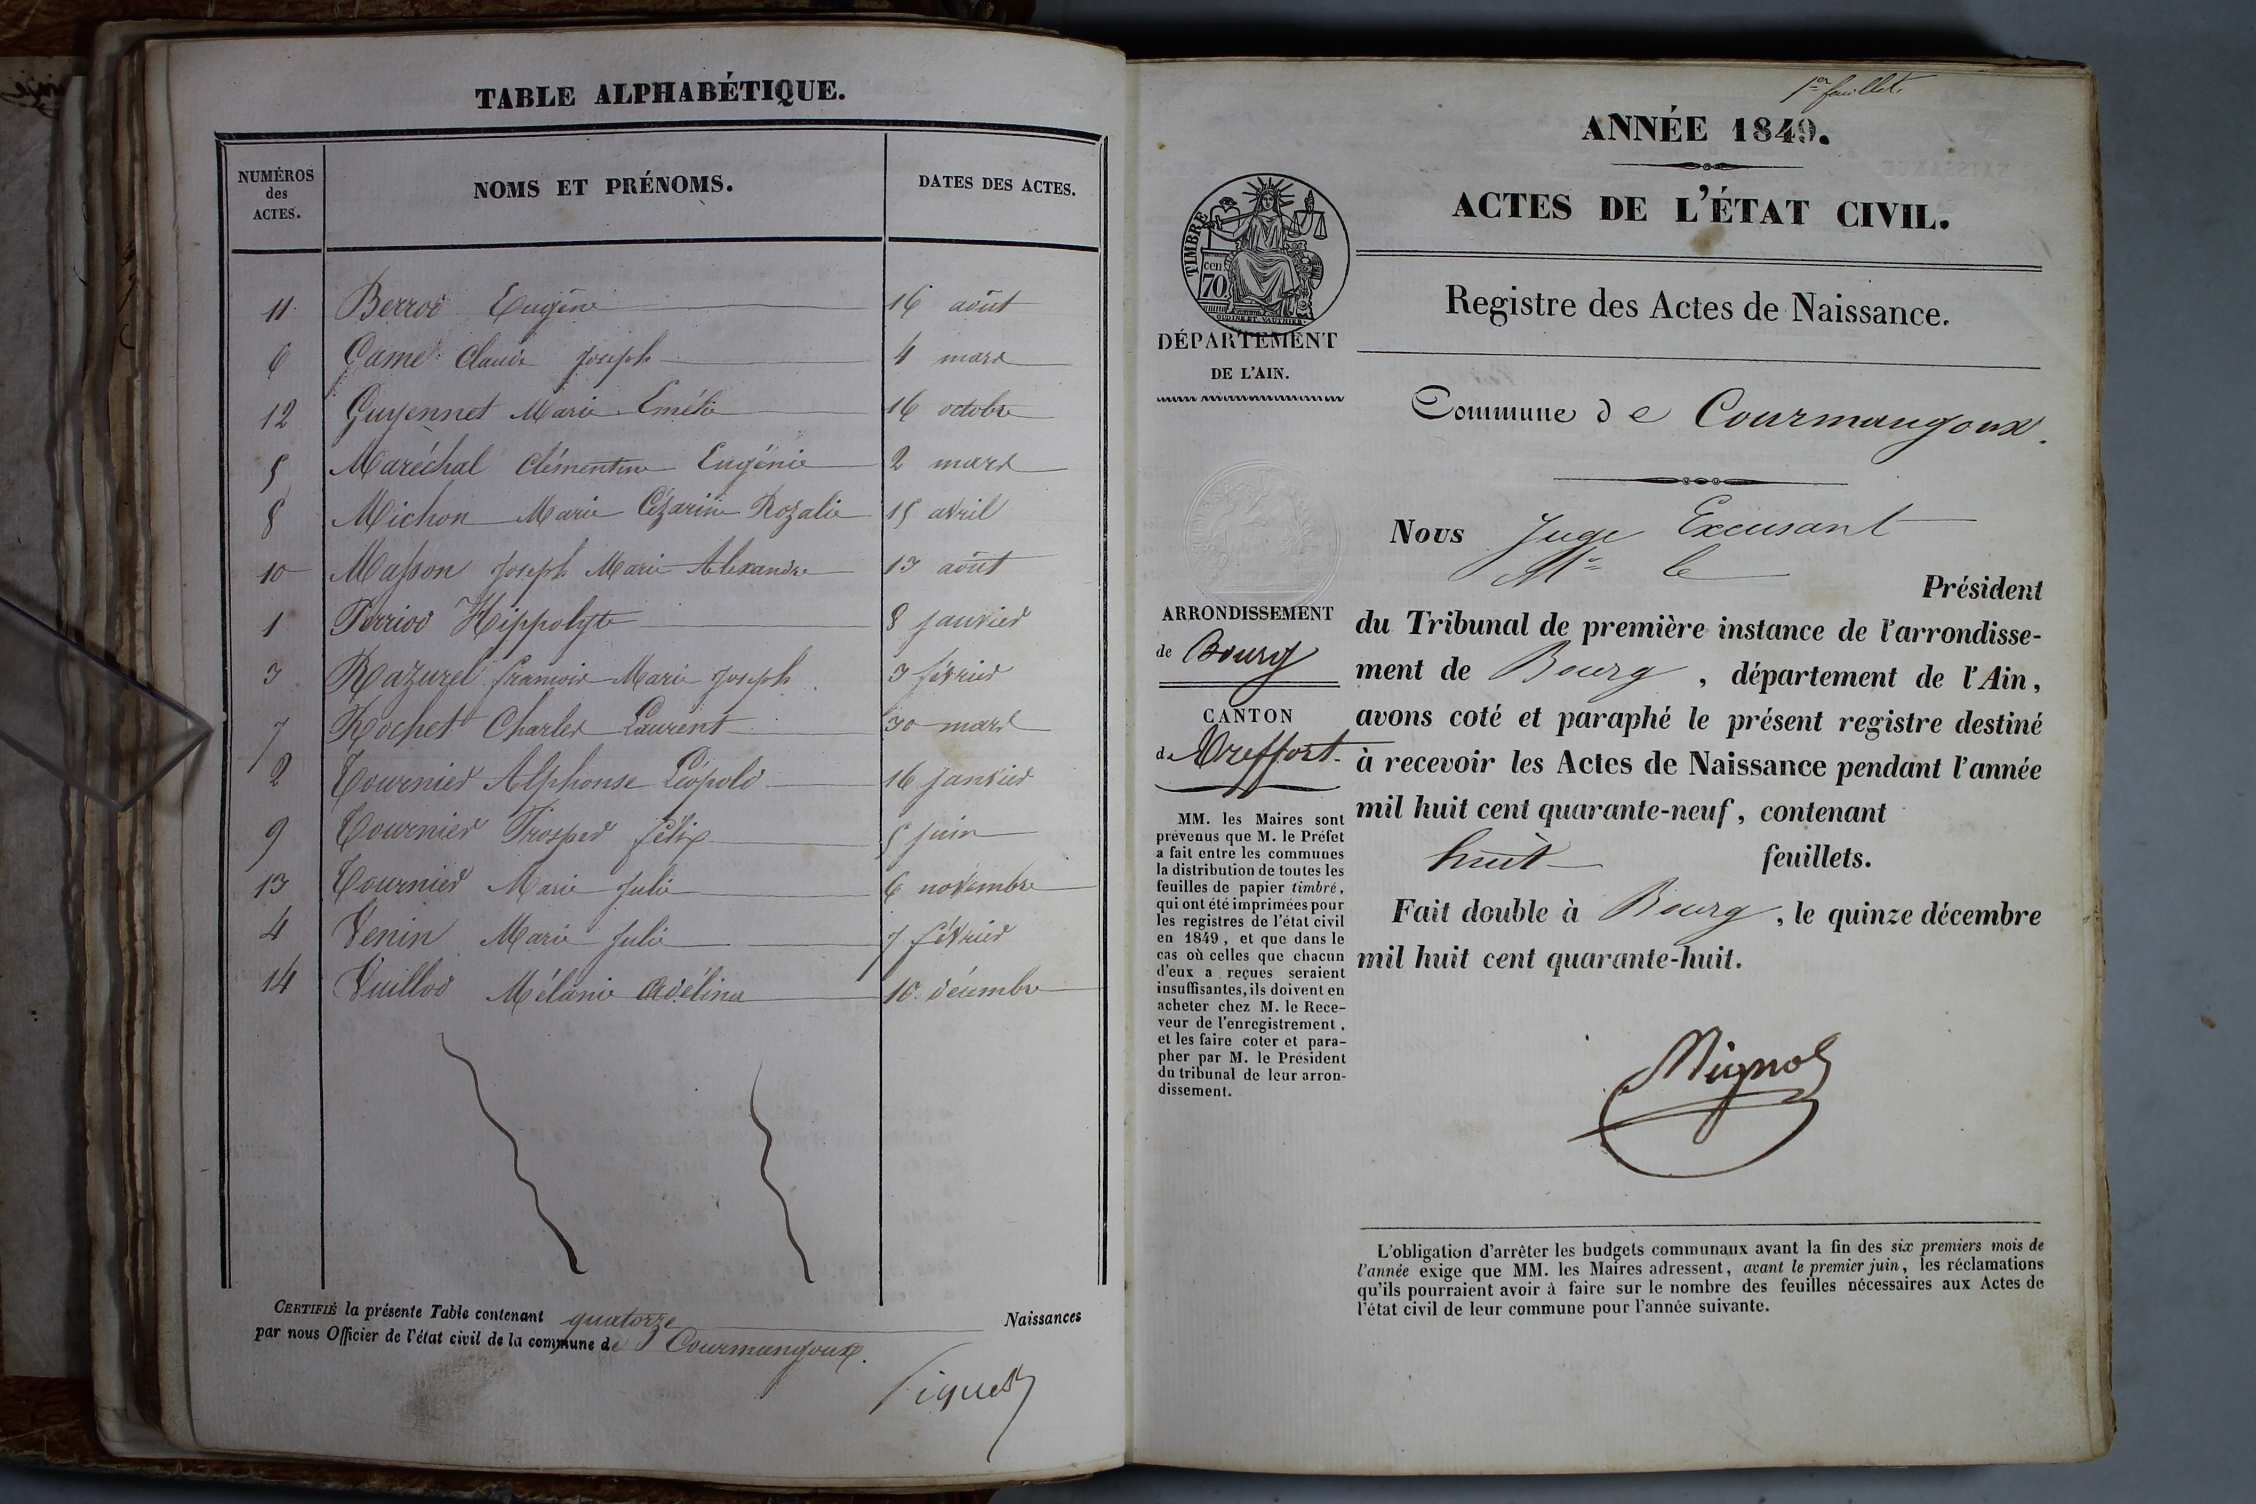 TABLE ALPHABÉTIQUE.
NUMÉROS des ACTES.
NOMS ET PRÉNOMS.
DATES DES ACTES.
11 Berrod Eugène 16 août
6 Game Claude Joseph 4 mars
12 Guyennet Marie Emélie 16 octobre
5 Maréchal Clémentine Eugénie 2 mars
8 Michon Marie Cézarine Rozalie 15 avril
10 Masson Joseph Marie Alexandre 13 août
1 Perriod Hippolyte 8 janvier
3 Razurel françois Marie Joseph 3 février
7 Rochet Charles Laurent 30 mars
2 Tournier Alphonse Léopold 16 janvier
9 Tournier Prosper félix 5 juin
13 Tournier Marie Julie 6 novembre
4 Venin Marie Julie 7 février
14 Vuillod Mélanie Adélina 10 décembre
CERTIFIÉ la présente Table contenant quatorze Naissances
par nous Officier de l'état civil de la commune de Courmangoux.
Piquet
1er feuillet.
ANNÉE 1849.
ACTES DE L'ÉTAT CIVIL.
TIMBRE
cen
70
Registre des Actes de Naissance.
DÉPARTEMENT
DE L'AIN.
Commune de Courmangoux.
Nous Juge Excusant
Mr le
Président
du Tribunal de première instance de l'arrondisse-
ment de Bourg, département de l'Ain,
avons coté et paraphé le présent registre destiné
à recevoir les Actes de Naissance pendant l'année
mil huit cent quarante-neuf, contenant
huit feuillets.
Fait double à Bourg, le quinze décembre
mil huit cent quarante-huit.
Mignot
ARRONDISSEMENT
de Bourg
CANTON
de Treffort
MM. les Maires sont
prévenus que M. le Préfet
a fait entre les communes
la distribution de toutes les
feuilles de papier timbré,
qui ont été imprimées pour
les registres de l'état civil
en 1849, et que dans le
cas où celles que chacun
d'eux a reçues seraient
insuffisantes, ils doivent en
acheter chez M. le Rece-
veur de l'enregistrement,
et les faire coter et para-
pher par M. le Président
du tribunal de leur arron-
dissement.
L'obligation d'arrêter les budgets communaux avant la fin des six premiers mois de
l'année exige que MM. les Maires adressent, avant le premier juin, les réclamations
qu'ils pourraient avoir à faire sur le nombre des feuilles nécessaires aux Actes de
l'état civil de leur commune pour l'année suivante.